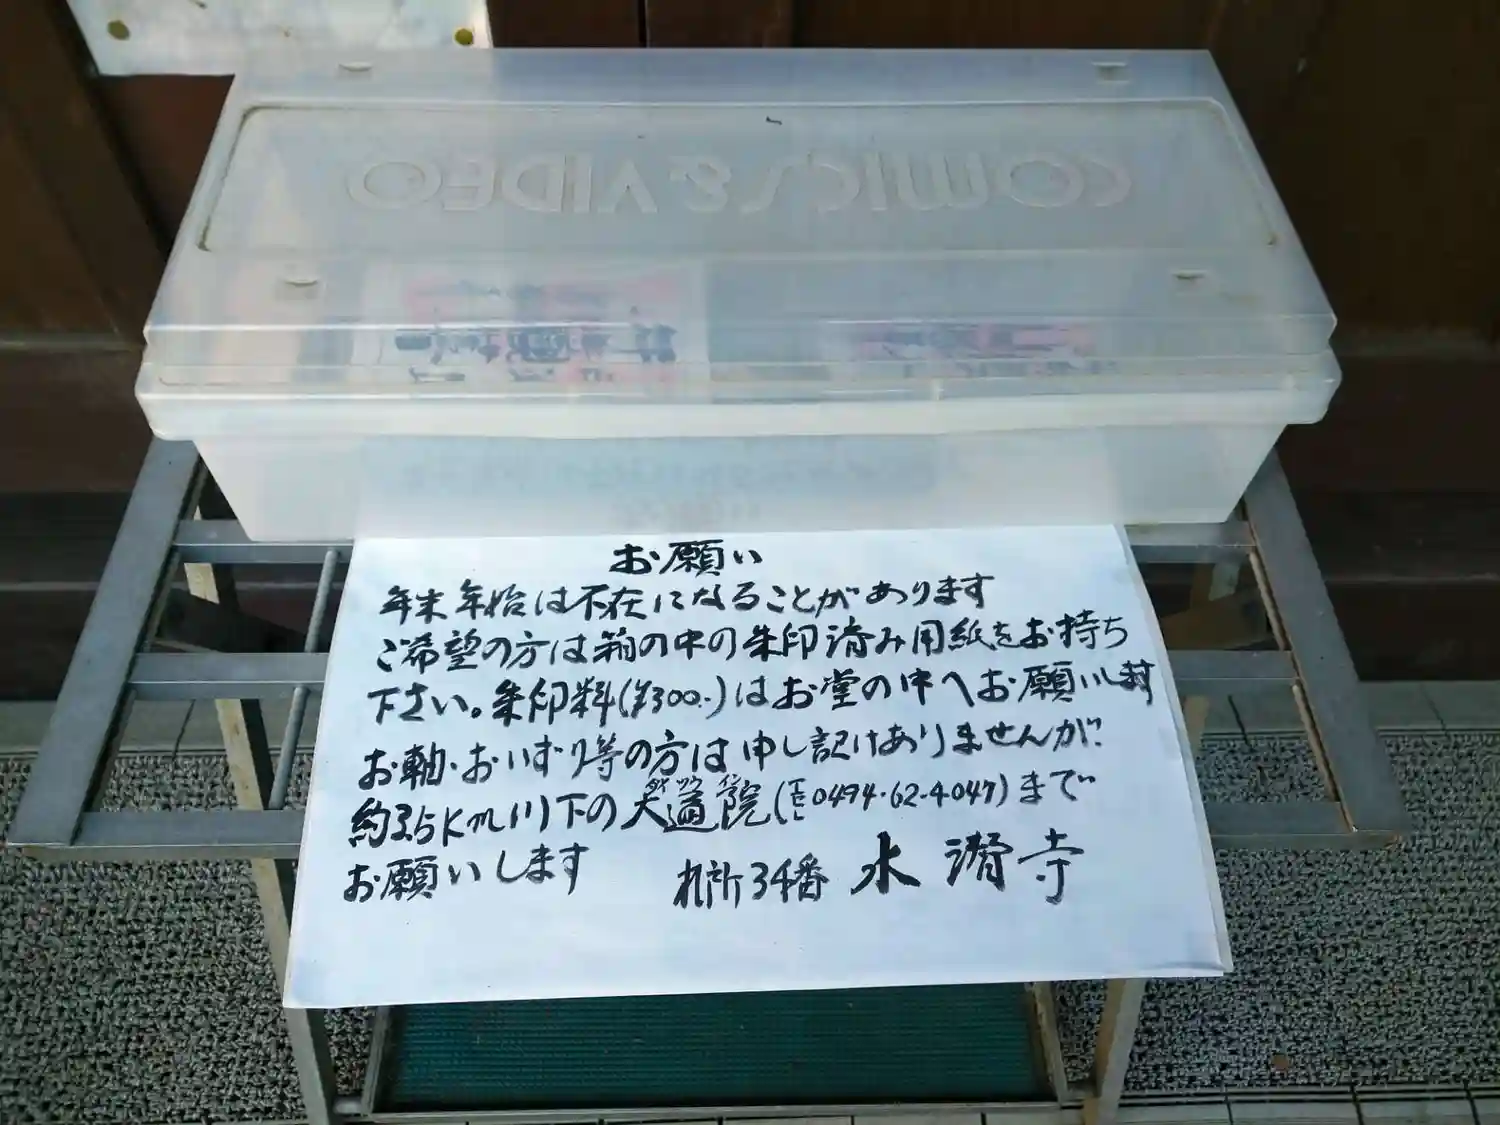 COMICS & VIDEO
お願い
年末年始は不在になることがあります
ご希望の方は箱の中の朱印済み用紙をお持ち
下さい。朱印料(¥300.-)はお堂の中へお願いします
お軸・おいずり等の方は申し訳けありませんが
約3.5km川下の大通院(℡0494-62-4047)まで
お願いします
札所34番 水潜寺